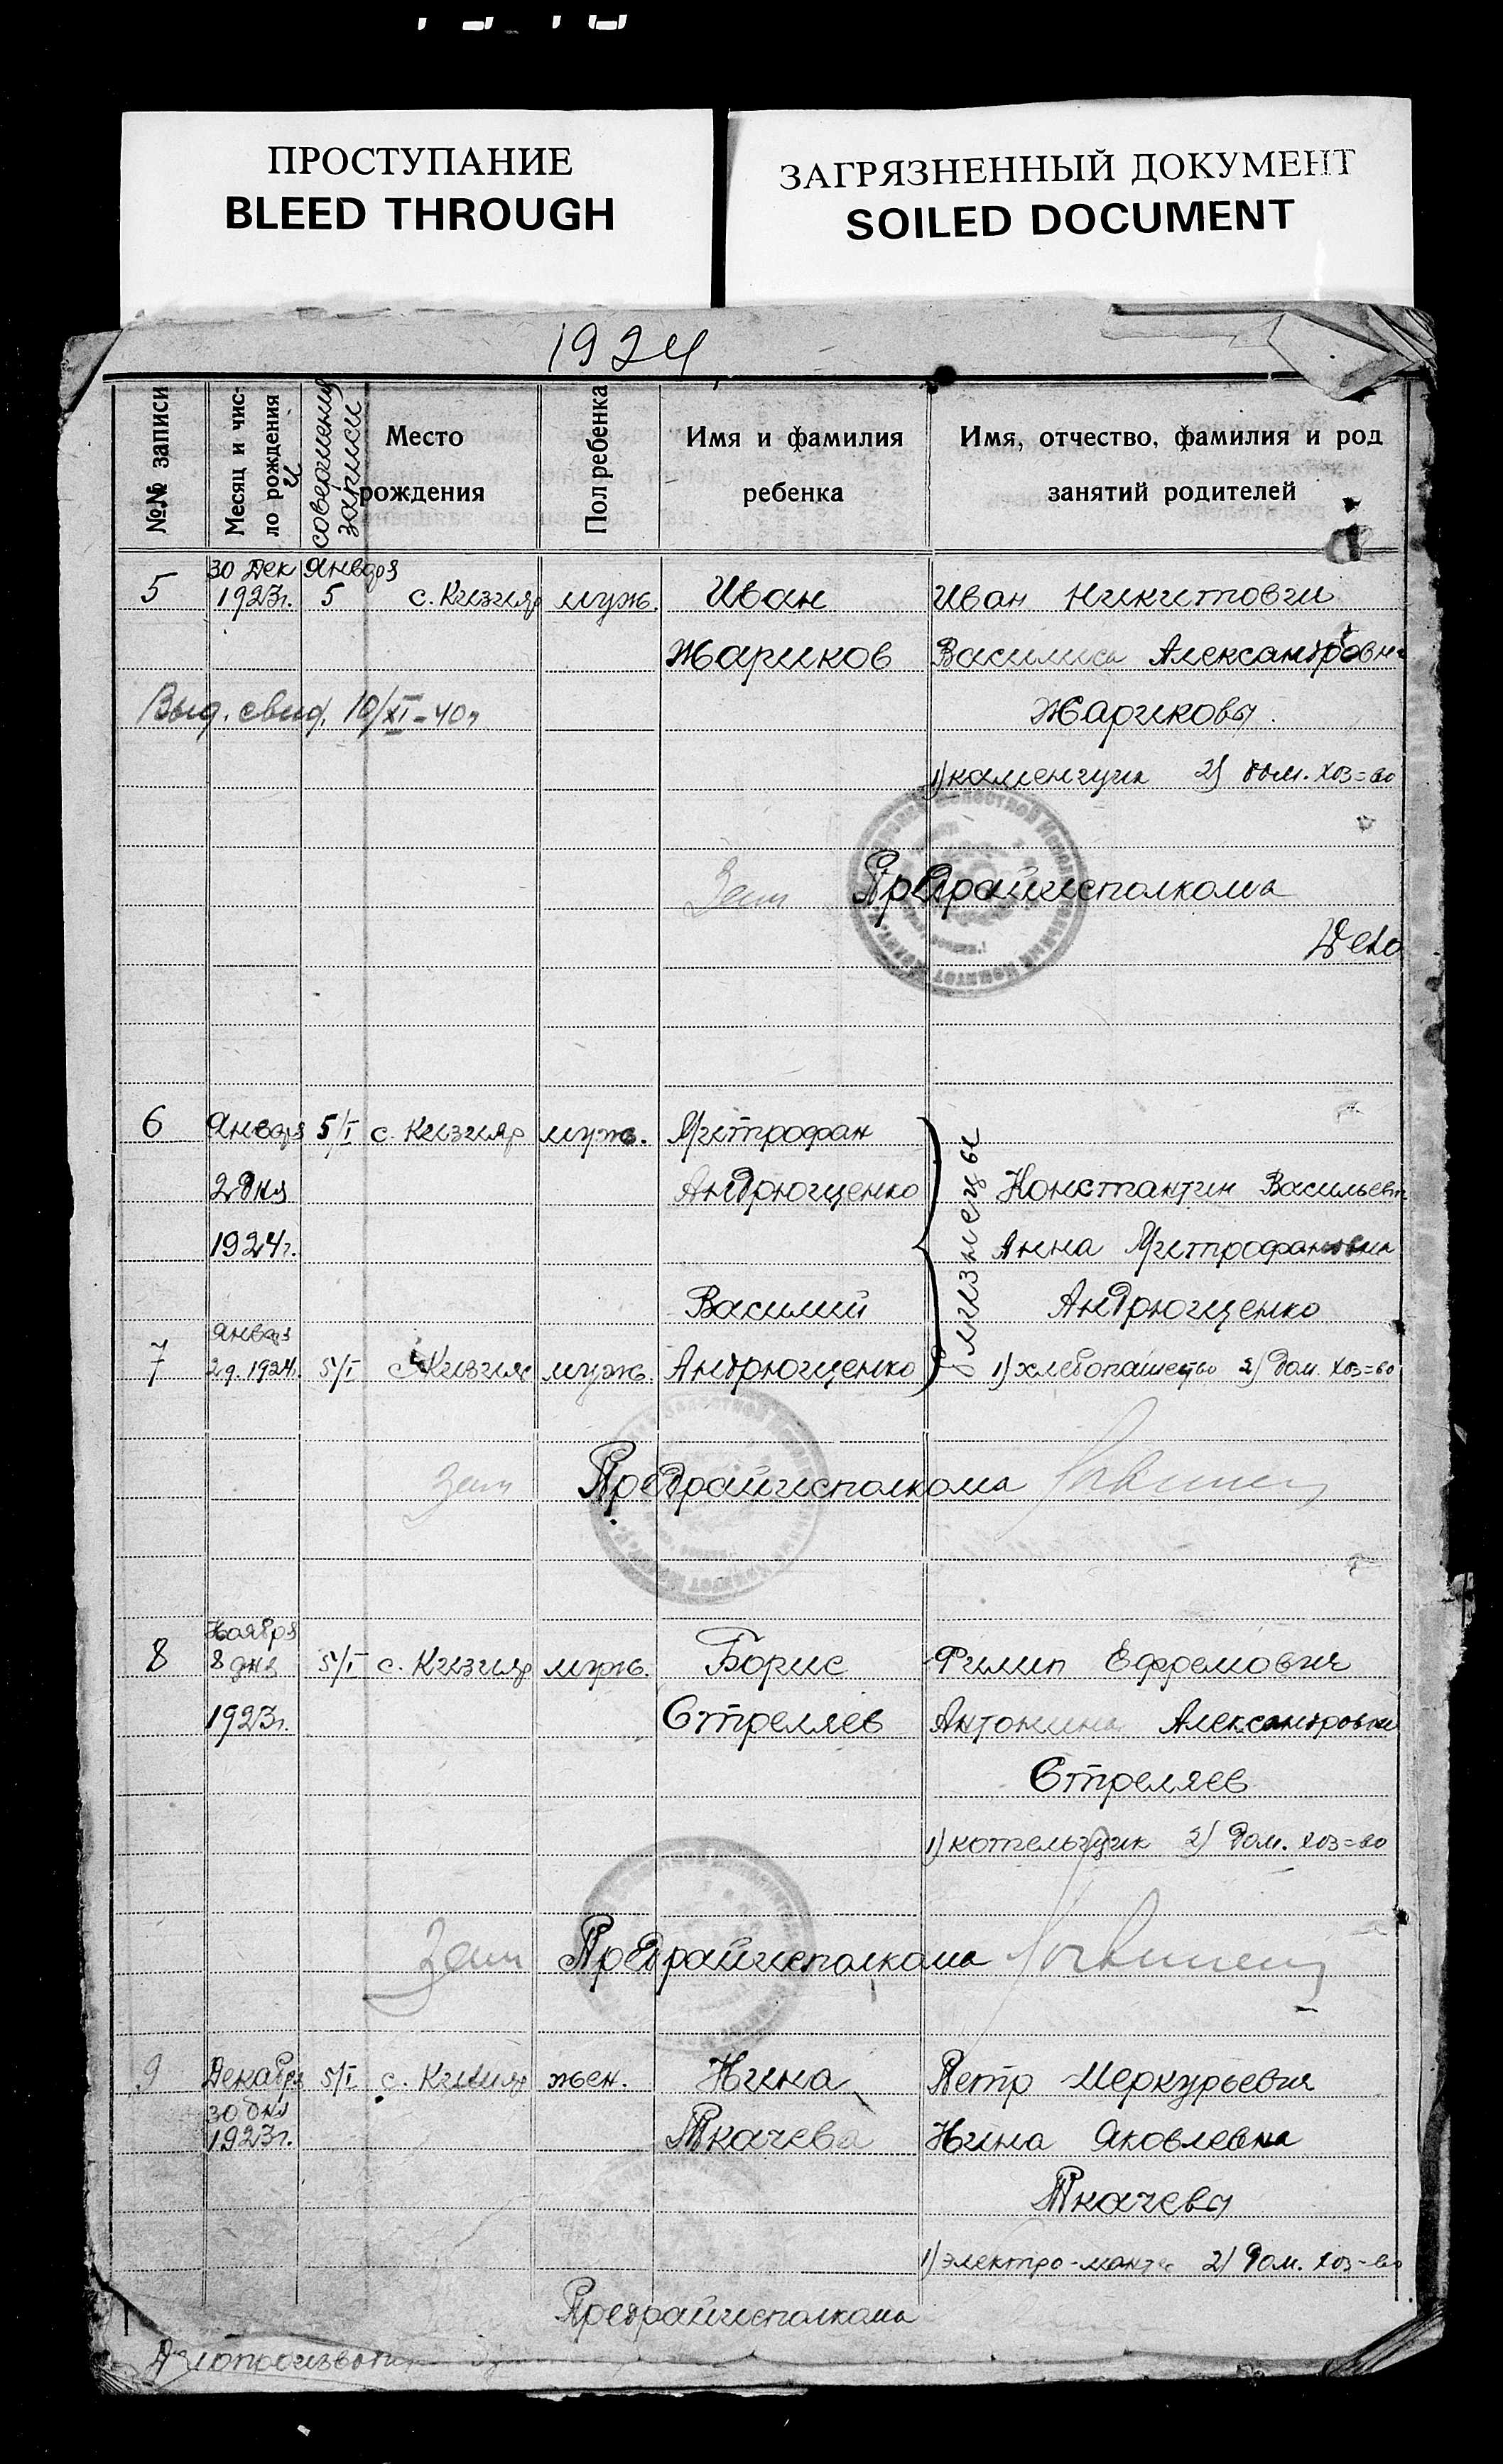 ПРОСТУПАНИЕ
BLEED THROUGH
ЗАГРЯЗНЕННЫЙ ДОКУМЕНТ
SOILED DOCUMENT
1924
№№ записи
Месяц и число рождения и
совершения записи
Место рождения
Пол ребенка
Имя и фамилия ребенка
Имя, отчество, фамилия и род занятий родителей
30 Дек Января
5 1923г. 5 с. Кизияр муж. Иван Иван Никитович
Жариков Василиса Александровна
Выд. свид. 10/XI-40г Жариковы.
1) каменщик 2) дом. хоз=во
Зам Предрайисполкома
6 Января 5/I с. Кизияр муж. Митрофан
2 дня Андрющенко Константин Васильевич
1924г. Анна Митрофановна
Близнецы
Василий Андрющенко
Января
7 2д. 1924г. 5/I с. Кизияр муж. Андрющенко 1) хлебопашество 2) дом. хоз=во
Зам Предрайисполкома
Ноября
8 8 дня 5/I с. Кизияр муж. Борис Филип Ефремович
1923г. Стреляев Антонина Александровна
Стреляев
1) котельщик 2) дом. хоз=во
Зам Предрайисполкома
9 Декабря 5/I с. Кизияр жен. Нина Петр Меркурьевич
30 дня
1923г. Ткачева Нина Яковлевна
Ткачевы
1) электро-монтер 2) дом. хоз-во
Предрайисполкома
Делопроизводитель